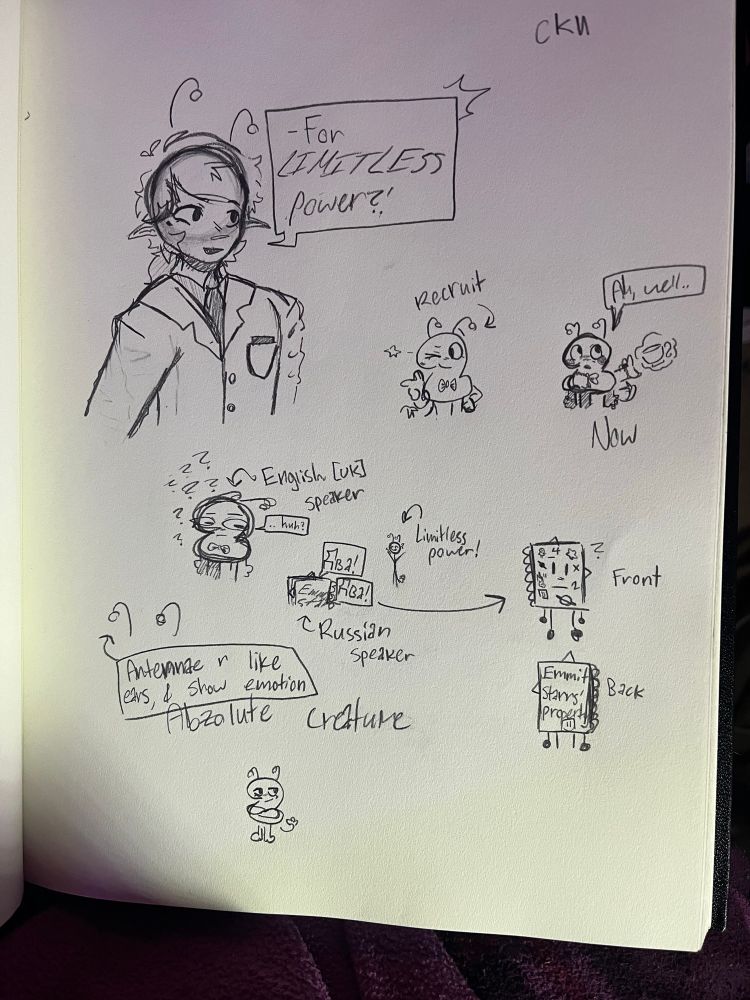 CKN
-For
LIMITLESS
power?!
Recruit
Ah, well..
Now
English [UK]
speaker
.. huh?
Limitless
power!
Два!
Два!
Russian
speaker
?
Front
Antennae r like
ears, & show emotion
Abzolute creature
Emmit
Starrs'
property
Back